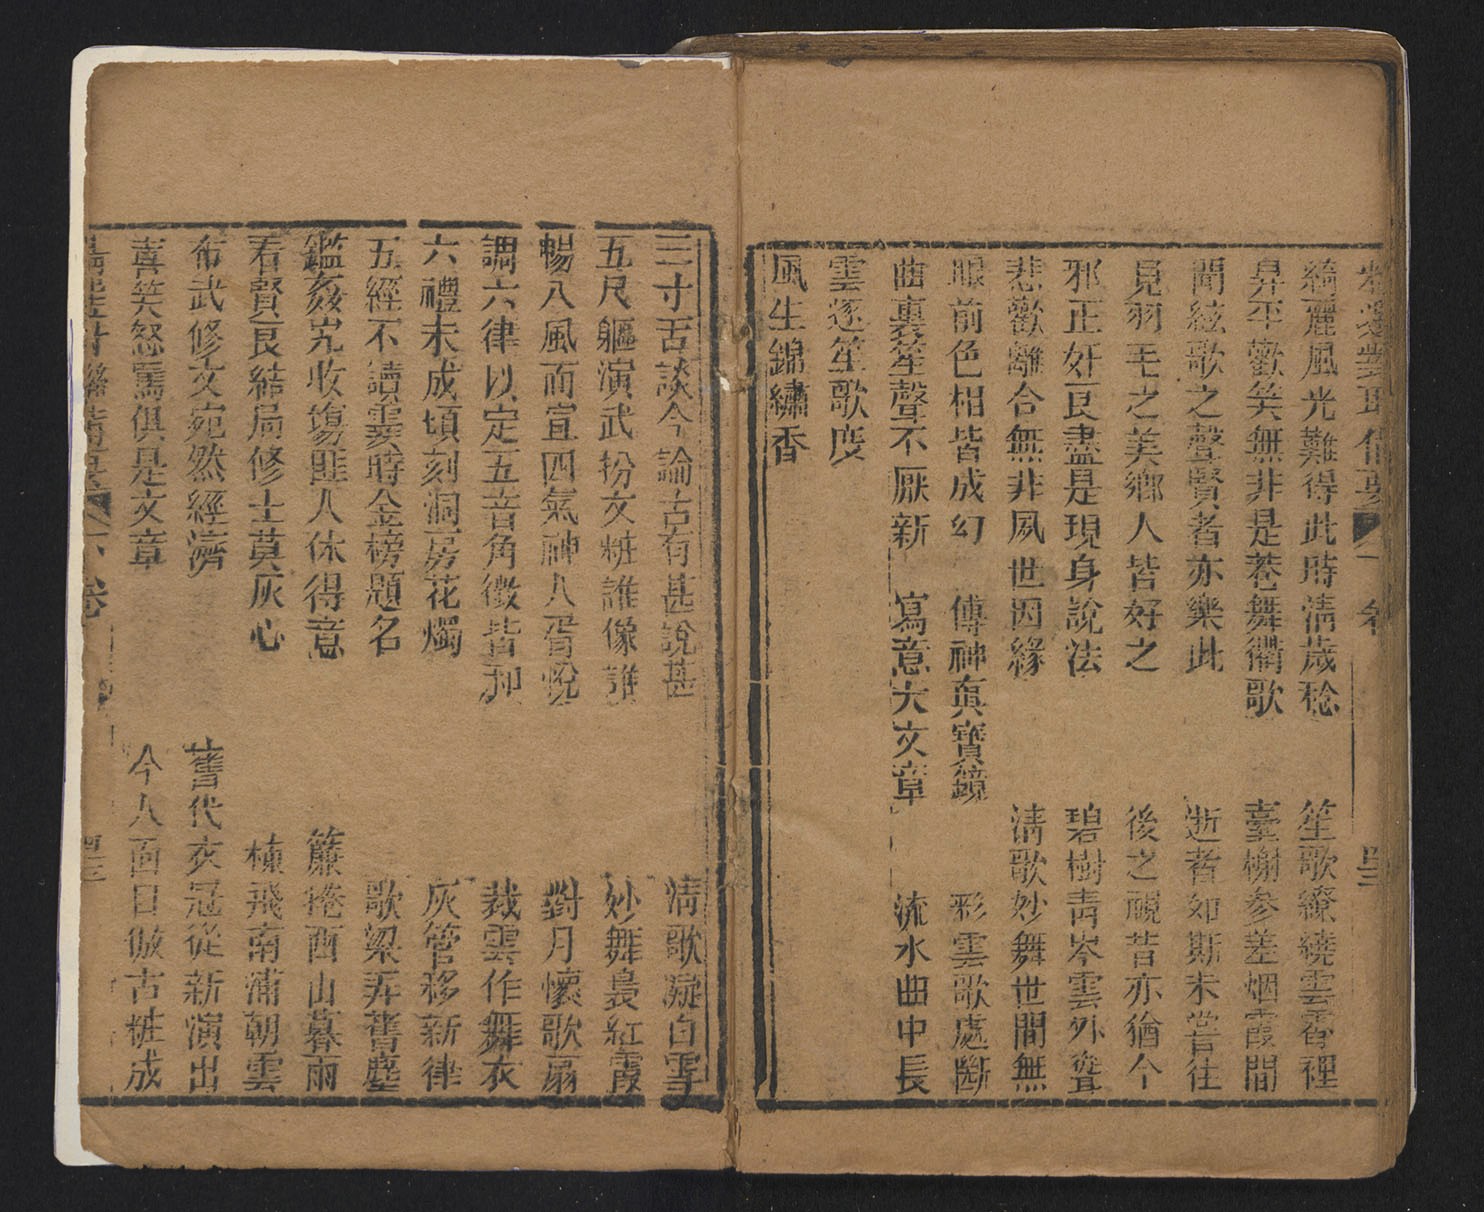 綺麗風光難得此時清歲稔　笙歌繚繞雲霄裡
昇平歡笑無非是巷舞衢歌　臺榭參差烟霞間
聞絃歌之聲賢者亦樂此　逝者如斯未嘗往
見羽毛之美鄉人皆好之　後之視昔亦猶今
邪正奸良盡是現身說法　碧樹青岑雲外聳
悲歡離合無非夙世因緣　清歌妙舞世間無
眼前色相皆成幻　傳神真寶鏡　彩雲歌處斷
曲裏笙聲不厭新　寫意大文章　流水曲中長
雲逐笙歌度
風生錦繡香
三寸舌談今論古有甚說甚　清歌凝白雪
五尺軀演武扮文粧誰像誰　妙舞裊紅霞
暢八風而宣四氣神人胥悅　對月懷歌扇
調六律以定五音角徵皆和　裁雲作舞衣
六禮未成頃刻洞房花燭　灰管移新律
五經不讀霎時金榜題名　歌梁弄舊塵
鑑姦宄收塲匪人休得意　簾捲西山暮雨
看賢良結局修士莫灰心　棟飛南浦朝雲
布武修文宛然經濟　舊代衣冠從新演出
喜笑怒罵俱是文章　今人面目倣古粧成